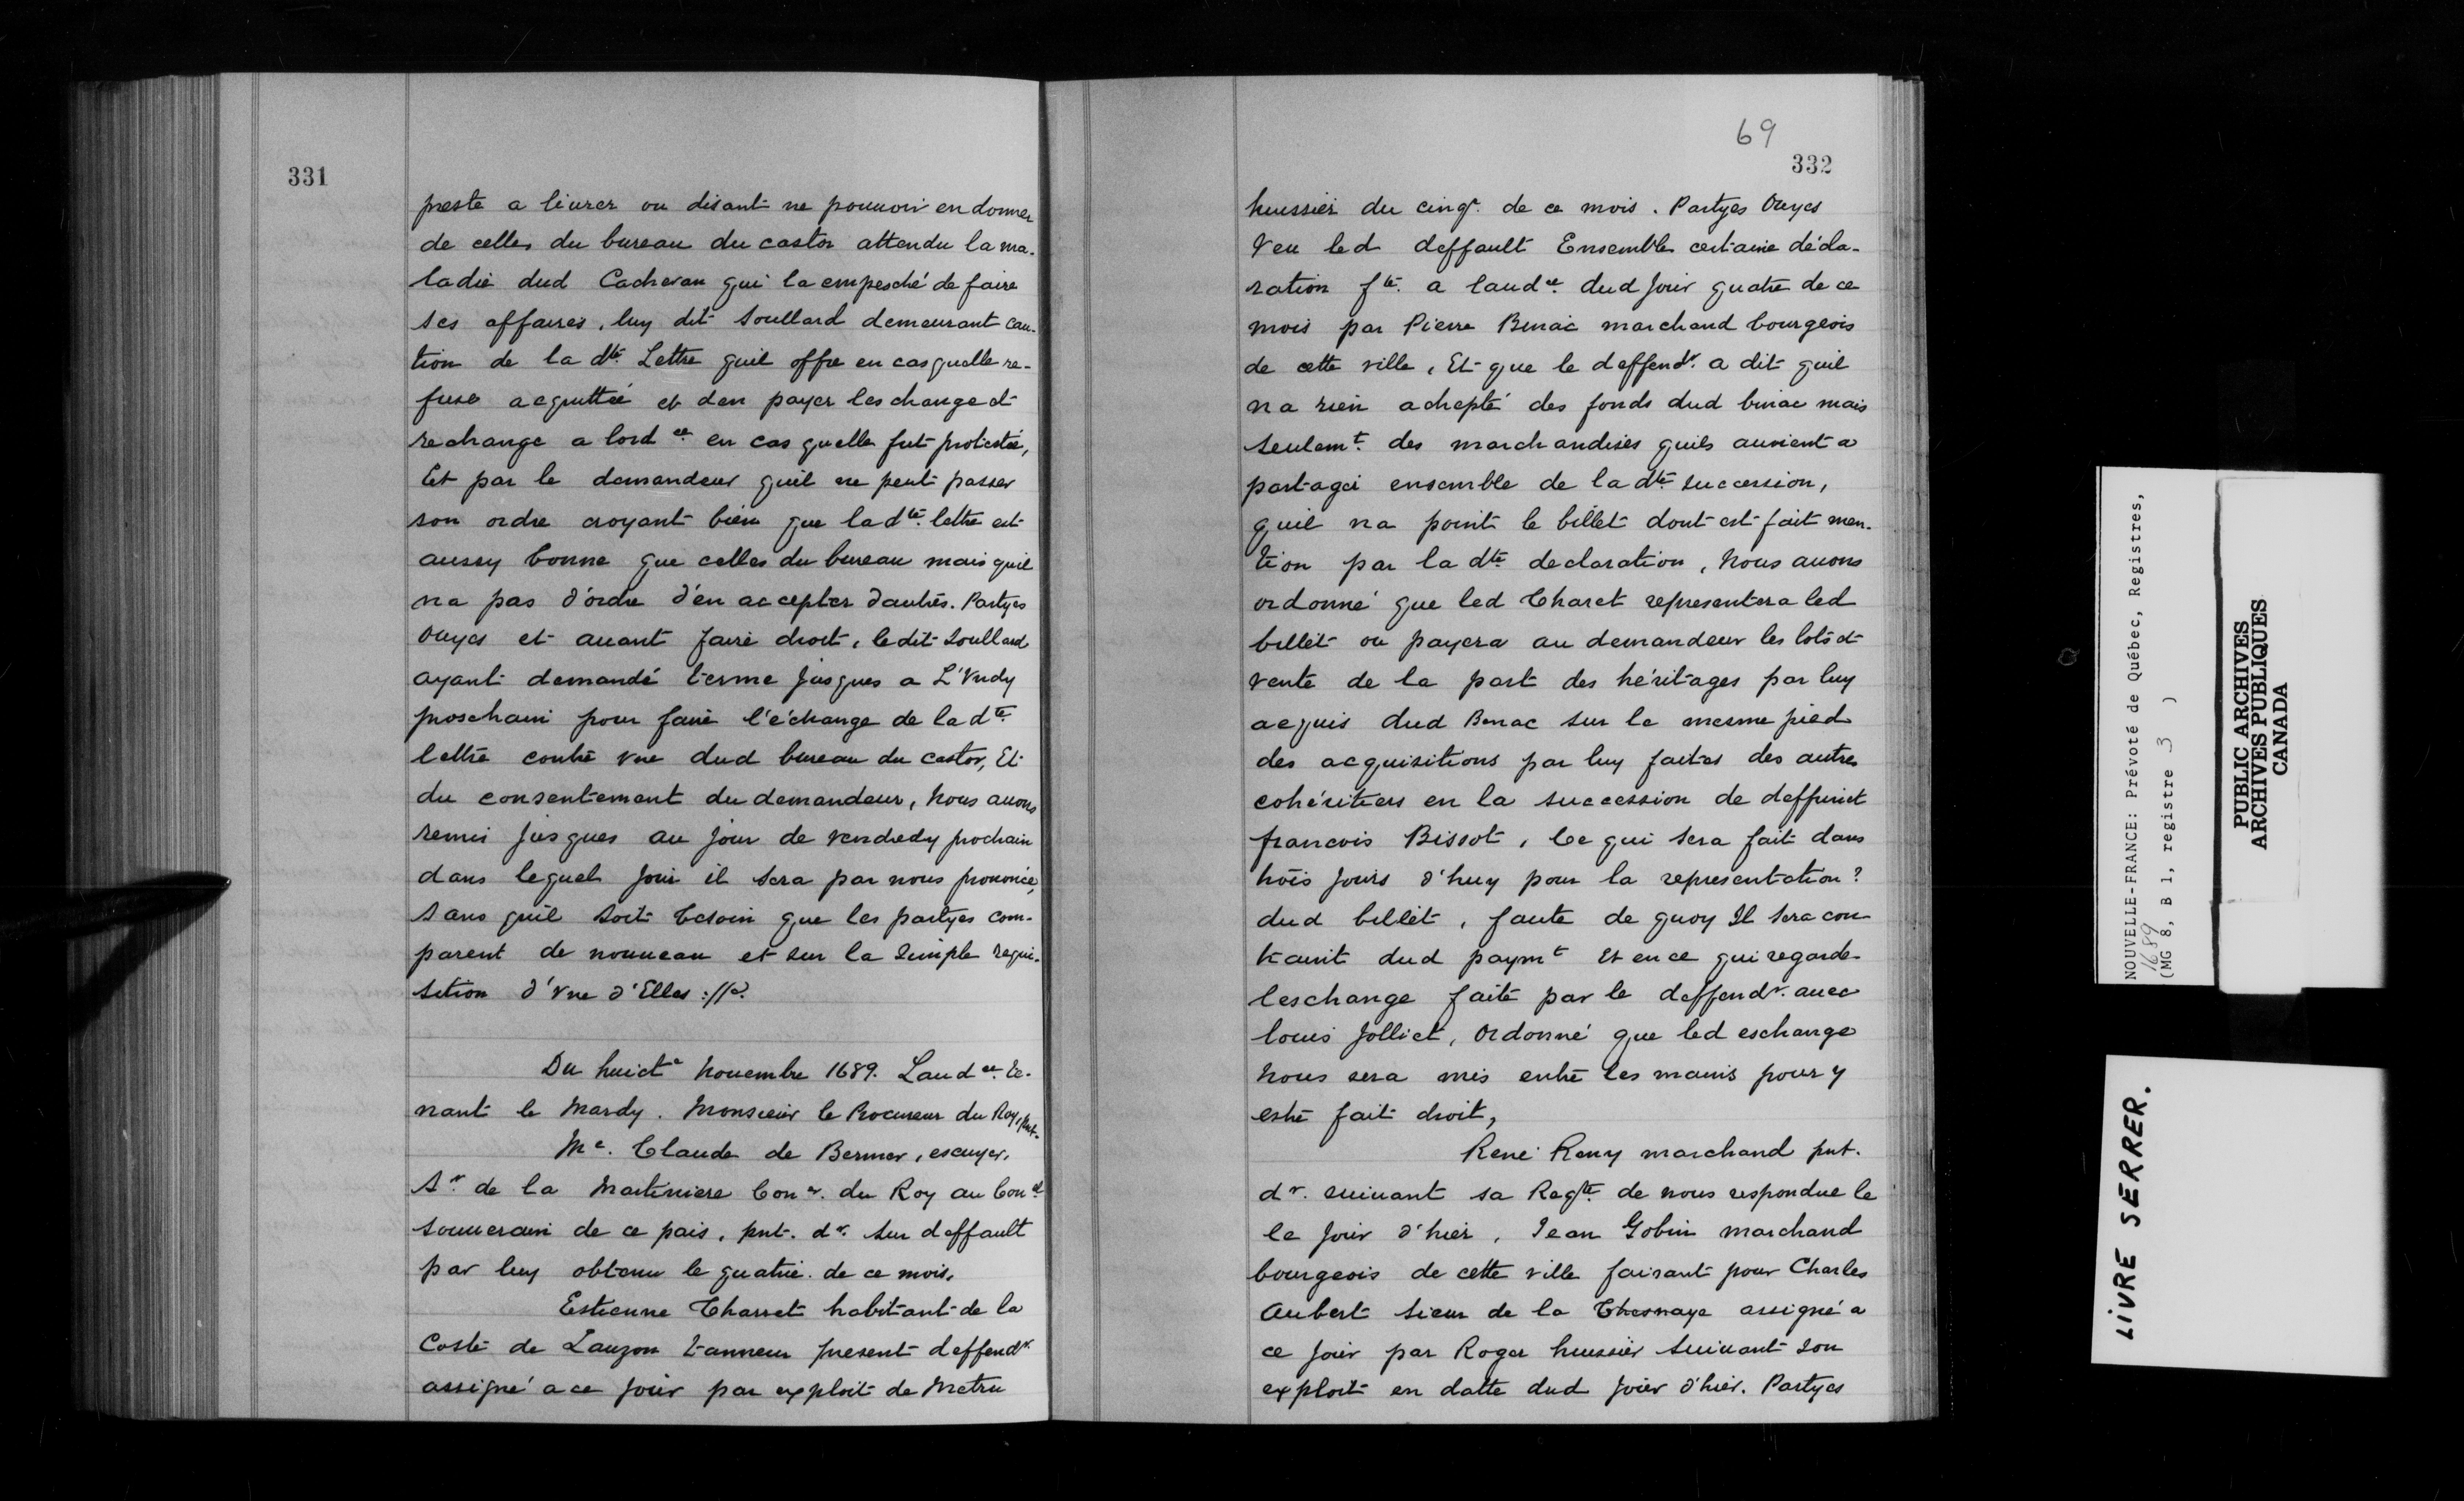 331
preste a liurer ou disant ne pouuoir en donner
de celles du bureau du castor attendu la ma-
ladie dud Cacheran qui la empesché de faire
ses affaires, luy dit Soullard demeurant cau-
tion de la dte. Lettre quil offre en cas quelle re-
fuse acquittée et den payer leschange et
rechange a lord ce. en cas quelle fut protestée,
Et par le demandeur quil ne peut passer
son ordre croyant bien que la dte. lettre est
aussy bonne que celles du bureau mais quil
na pas d'ordre d'en accepter dautres. Partyes
Ouyes et auant faire droit, ledit Soullard
ayant demandé terme jusques a L'Vndy
proschain pour faire l'échange de la dte.
lettre contre vne dud bureau du castor, Et
du consentement du demandeur, Nous auons
remis jusques au jour de vendredy prochain
dans lequel jour il sera par nous prononcé,
sans quil soit besoin que les partyes com-
parent de nouueau et sur la simple requi-
sition d'vne d'Elles ://.
Du huicte Nouembre 1689. Laud ce. te-
nant le Mardy. Monsieur le Procureur du Roy, pnt.
Me. Claude de Bermer, escuyer,
Sr. de la Martiniere Coner. du Roy au Conel
souuerain de ce pais, pnt. dr. sur deffault
par luy obtenu le quatrie. de ce mois,
Estienne Charret habitant de la
Coste de Lauzon tanneur present deffendr.
assigné a ce jour par exploit de Metru
69
332
huissier du cinqe. de ce mois. Partyes Ouyes
Veu led deffault Ensemble certaine décla-
ration fte. a laud ce. dud jour quatre de ce
mois par Pierre Benac marchand bourgeois
de cette ville, Et que le deffendr. a dit quil
na rien achepté des fonds dud benac mais
seulemt. des marchandises quils auoient a
partager ensemble de la dte. succession,
quil na point le billet dont est fait men-
tion par la dte declaration, Nous auons
ordonné que led Charet representera led
billet ou payera au demandeur les lots et
vente de la part des héritages par luy
acquis dud Benac sur le mesme pied
des acquisitions par luy faites des autres
cohéritiers en la succession de deffunct
francois Bissot, Ce qui sera fait dans
trois jours d'huy pour la representation?
dud billet, faute de quoy Il sera con
traint dud paymt Et en ce qui regarde
leschange faite par le deffendr. auec
louis Jolliet, Ordonné que led eschange
Nous sera mis entre les mains pour y
estre fait droit,
René Remy marchand pnt.
dr. suiuant sa Reqte. de nous respondue le
le jour d'hier, Jean Gobin marchand
bourgeois de cette ville faisant pour Charles
Aubert sieur de la Chesnaye assigné a
ce jour par Roger huissier suiuant son
exploit en datte dud jour d'hier. Partyes
NOUVELLE-FRANCE: Prévoté de Québec, Registres,
1689
(MG 8, B 1, registre 3 )
PUBLIC ARCHIVES
ARCHIVES PUBLIQUES
CANADA
LIVRE SERRER.